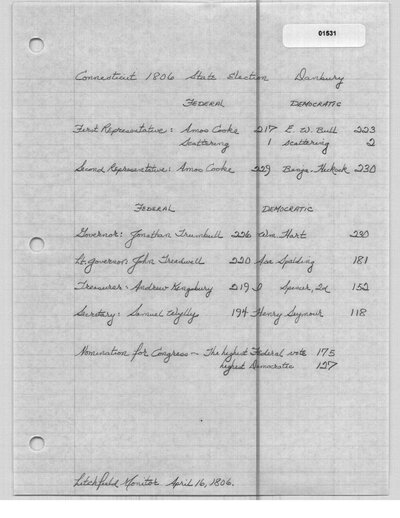 01531
Connecticut 1806 State Election Danbury
FEDERAL DEMOCRATIC
First Representative: Amos Cooke 217 E. W. Bull 223
Scattering 1 Scattering 2
Second Representative: Amos Cooke 229 Benja. Hickock 230
FEDERAL DEMOCRATIC
Governor: Jonathan Trumbull 226 Wm. Hart 230
Lt. governor John Treadwell 220 Asa Spalding 181
Treasurer: Andrew Kingsbury 219 Spencer, 2d 152
Secretary: Samuel Wyllys 194 Henry Seymour 118
Nomination for Congress — The highest Federal vote 175
highest Democratic 127
Litchfield Monitor April 16, 1806.